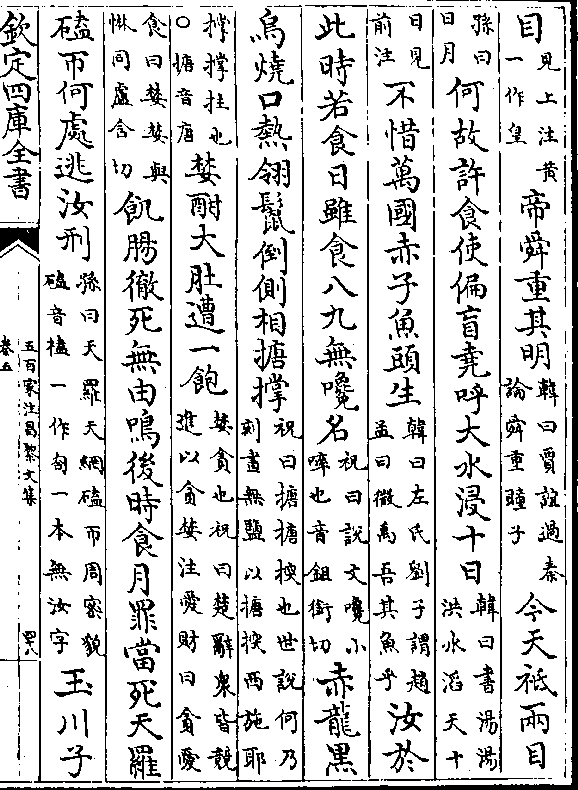 目見上注黄一作皇帝舜重其明韓曰賈誼過秦論舜重瞳子今天祗兩目
孫曰日月何故許食使偏盲堯呼大水浸十日韓曰書湯湯洪水滔天十
日見前注不惜萬國赤子魚頭生韓曰左氏劉子謂趙孟曰微禹吾其魚乎汝於
此時若食日雖食八九無嚵名祝曰說文嚵小啐也音鉏銜切赤龍黑
烏燒口熱翎鬛倒側相搪撑祝曰搪搪揬也世說何乃刻畫無鹽以搪揬西施耶
撑撑拄也○搪音唐婪酣大肚遭一飽婪貪也祝曰楚辭衆皆競進以貪婪注愛財曰貪愛
食曰婪婪與惏同盧含切飢腸徹死無由鳴後時食月罪當死天羅
磕帀何處逃汝刑孫曰天羅天網磕帀周密貌磕音榼一作匌一本無汝字玉川子
欽定四庫全書
五百家注昌黎文集
卷五
四十八